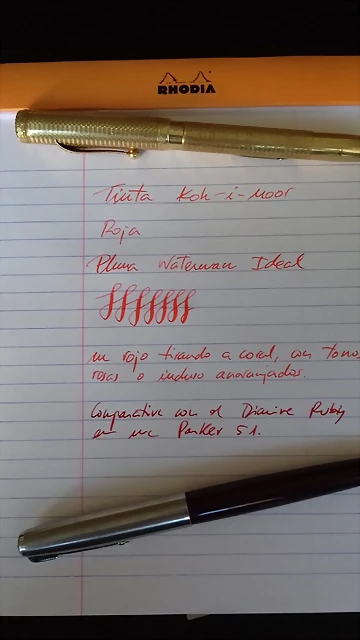 RHODIA
Tinta Koh-i-noor
Roja
Pluma Waterman Ideal
un rojo tirando a coral, con tonos
rosas o incluso anaranjados.
Comparativa con el Diamine Ruby
en una Parker 51.